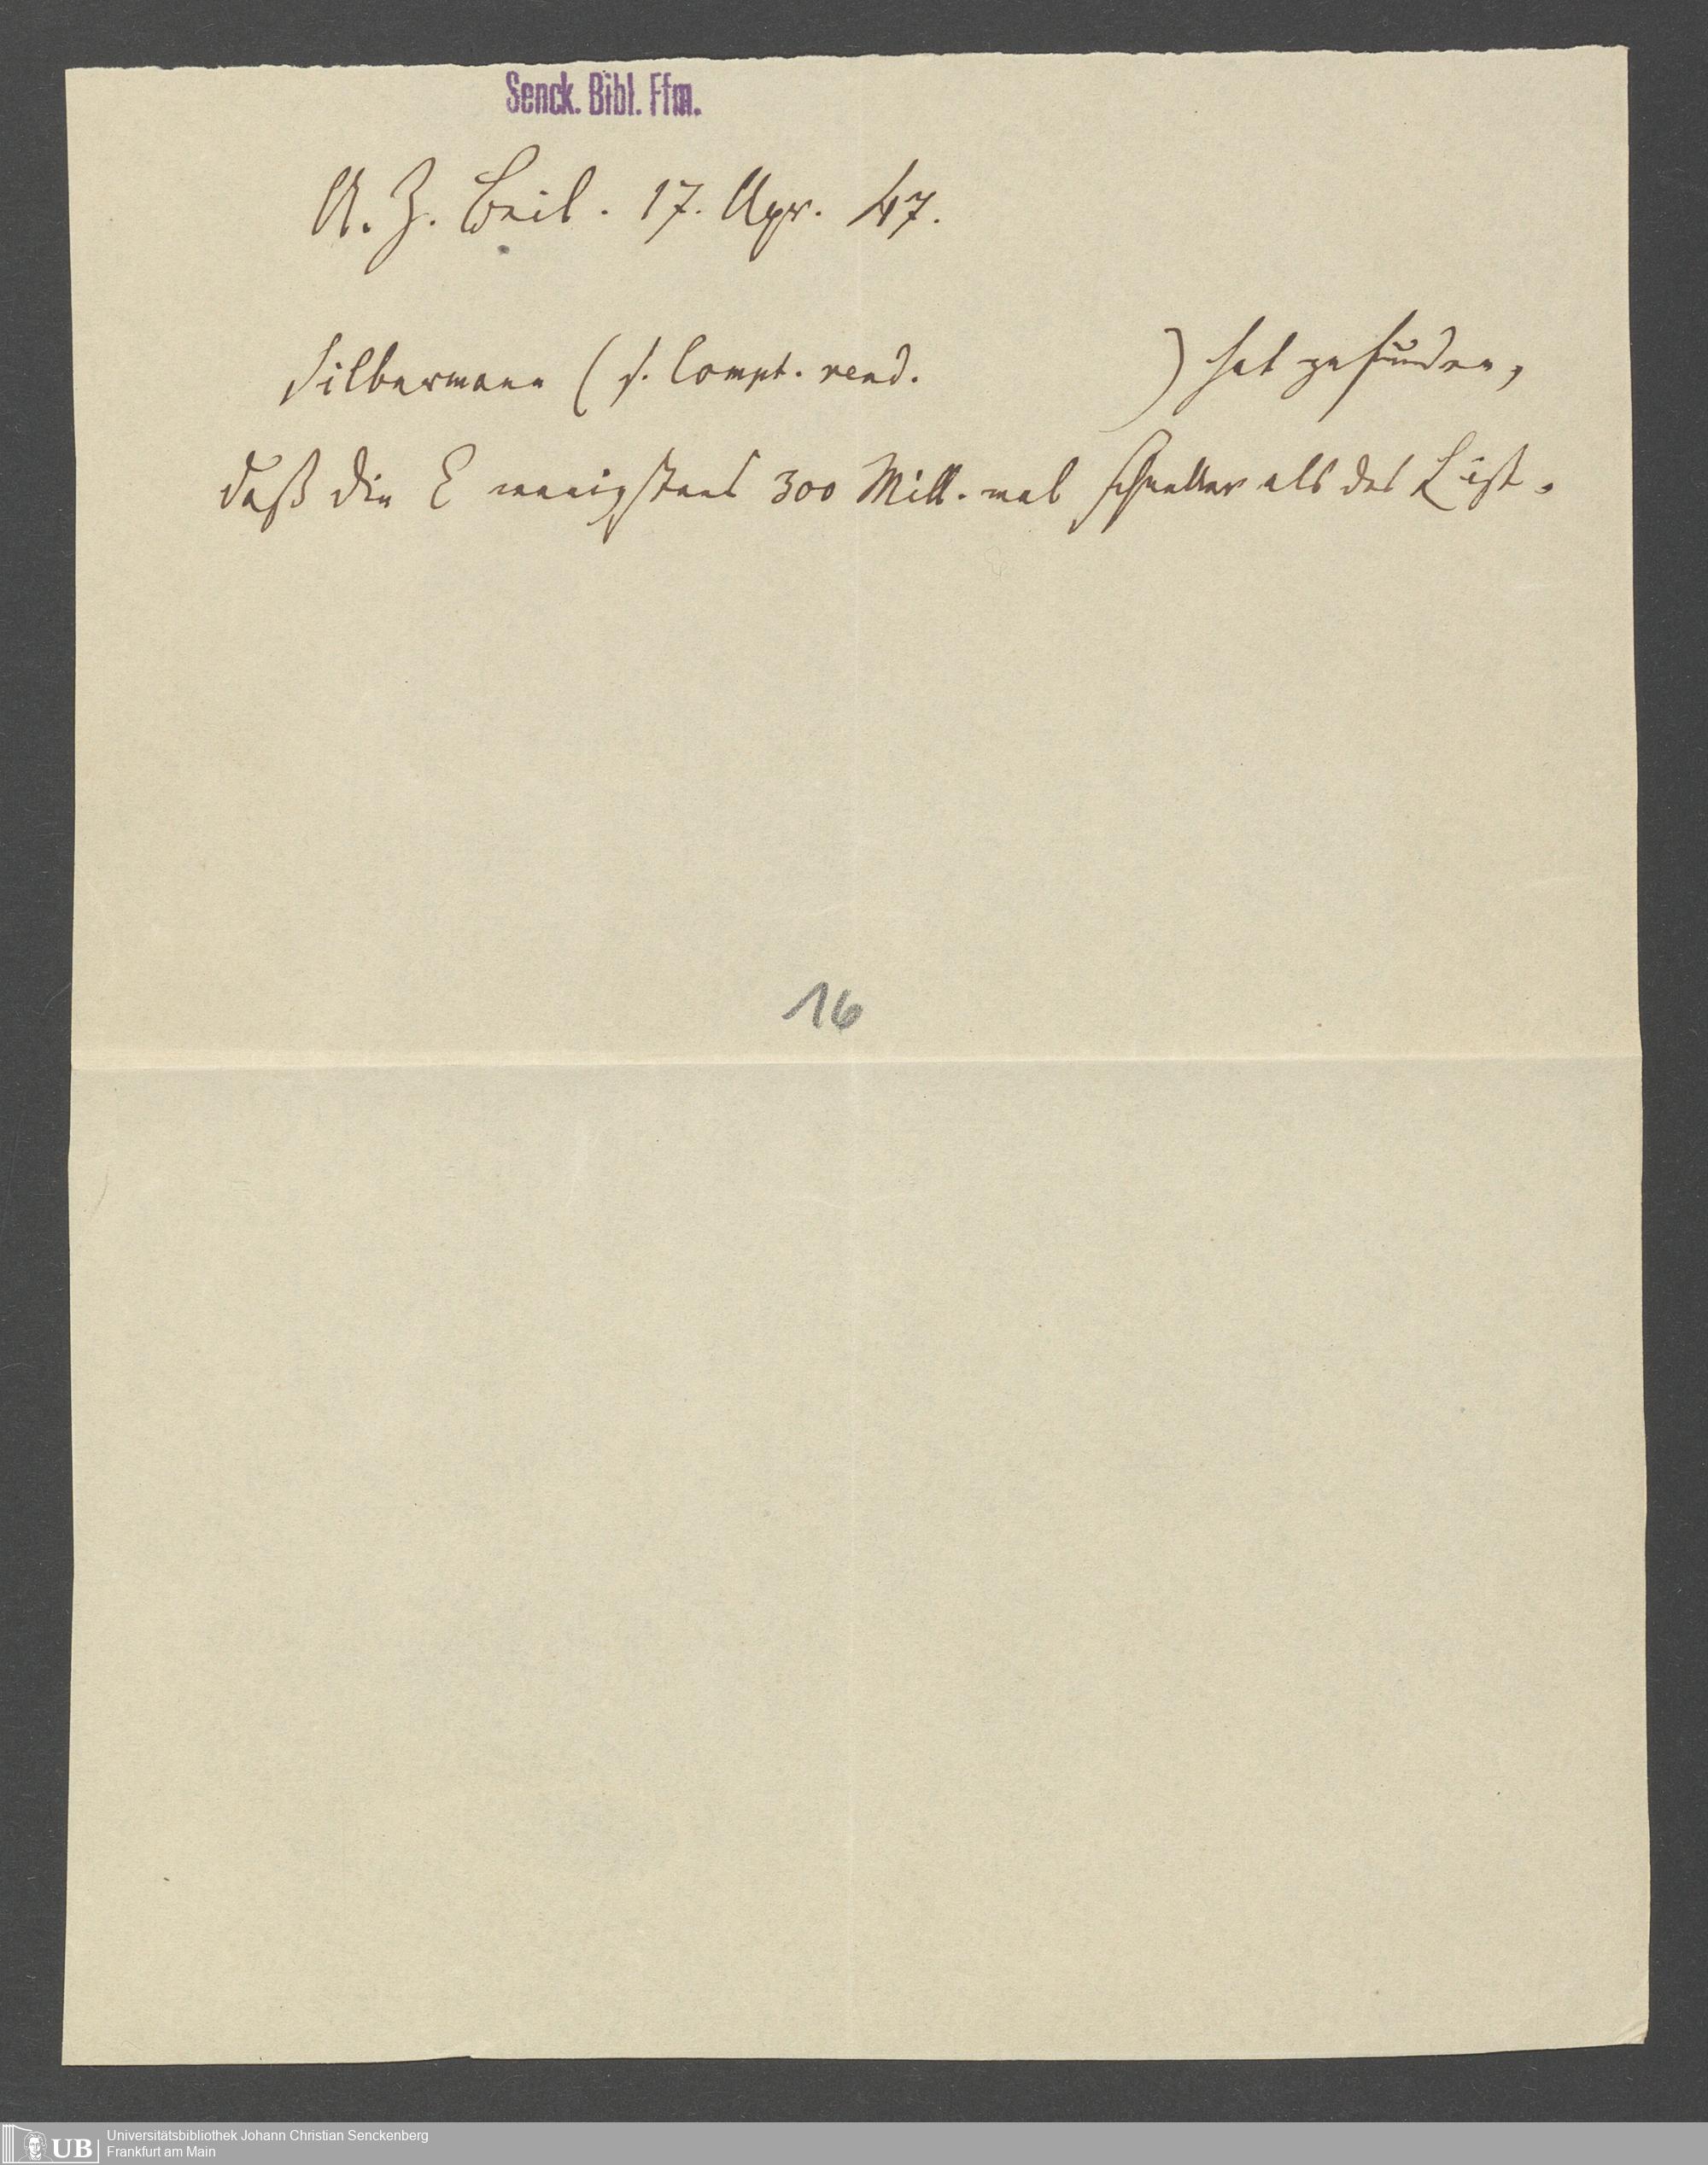 Senck. Bibl. Ffm.
A. Z. Beil. 17. Apr. 47.
Silbermann (s. Compt. rend. ) hat gefunden,
daß die E wenigstens 300 Mill. mal schneller als das Licht.
16
UB Universitätsbibliothek Johann Christian Senckenberg
Frankfurt am Main